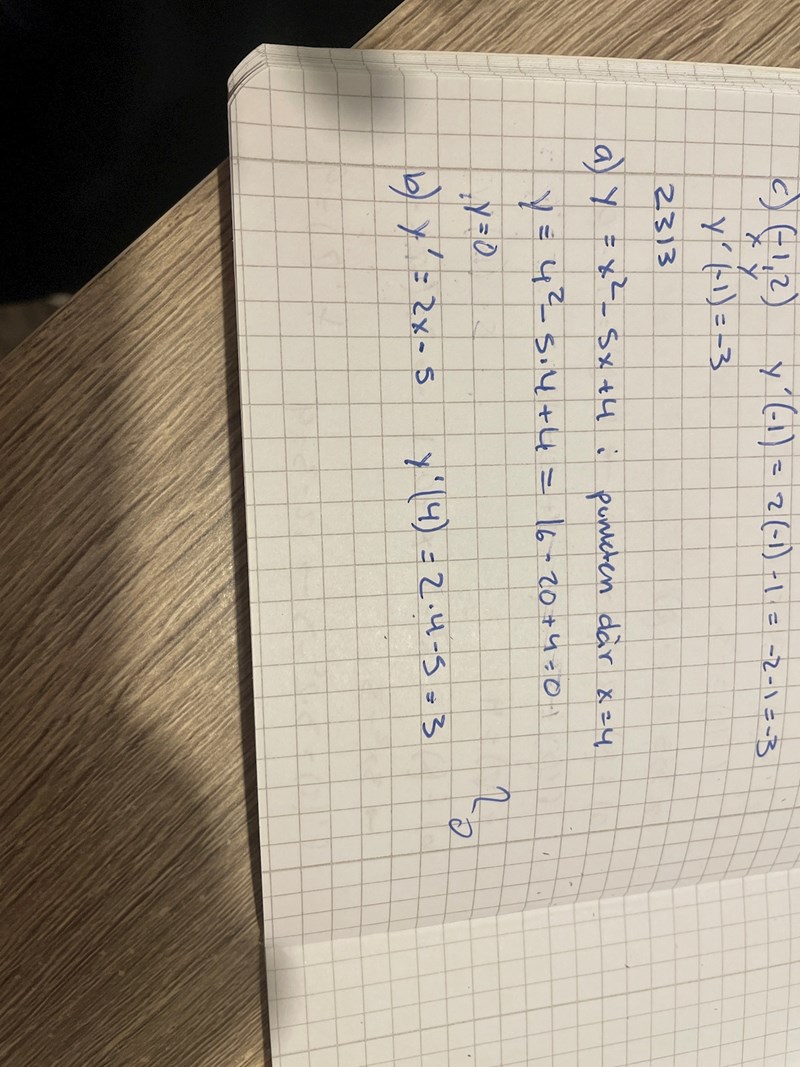 c) (-1,2) y'(-1) = 2(-1) -1 = -2-1 = -3
x y
y'(-1) = -3
2313
a) y = x² - 5x + 4 i punkten där x=4
y = 4² - 5·4 + 4 = 16 - 20 + 4 = 0
y = 0
b) y' = 2x - 5 y'(4) = 2·4 - 5 = 3